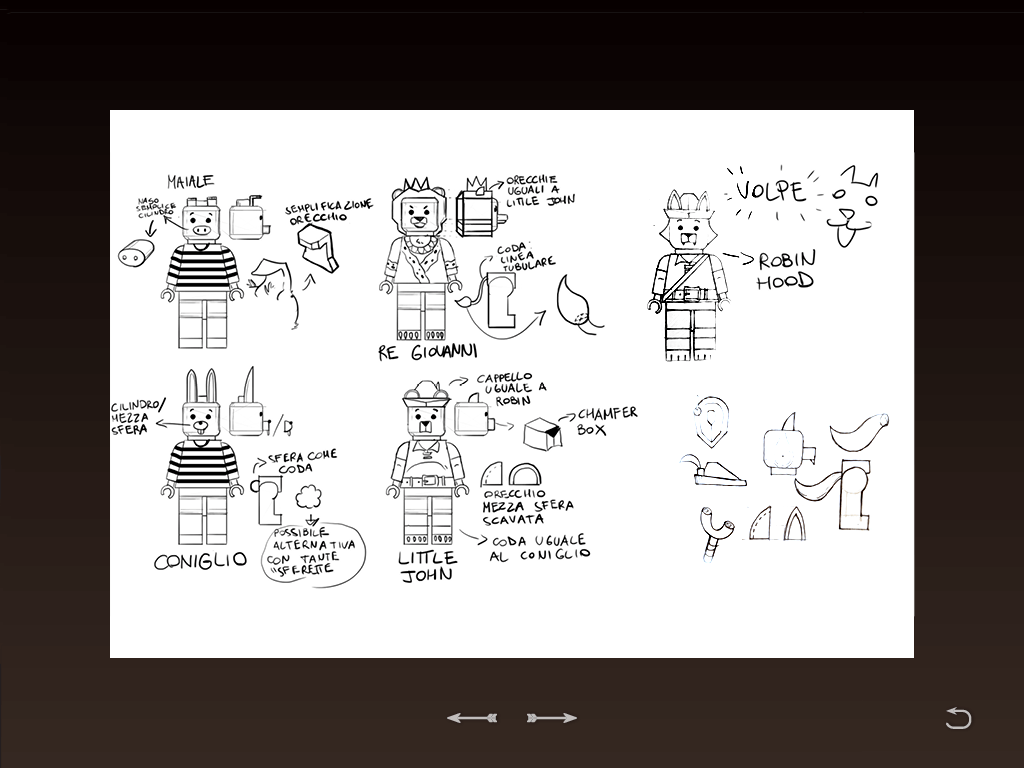 MAIALE
NASO
SEMPLICE
CILINDRO
SEMPLIFICAZIONE
ORECCHIO
ORECCHIE
UGUALI A
LITTLE JOHN
CODA:
LINEA
TUBULARE
RE GIOVANNI
VOLPE
ROBIN
HOOD
CILINDRO/
MEZZA
SFERA
SFERA COME
CODA
POSSIBILE
ALTERNATIVA
CON TANTE
"SFERETTE
CONIGLIO
CAPPELLO
UGUALE A
ROBIN
CHAMFER
BOX
ORECCHIO
MEZZA SFERA
SCAVATA
CODA UGUALE
AL CONIGLIO
LITTLE
JOHN